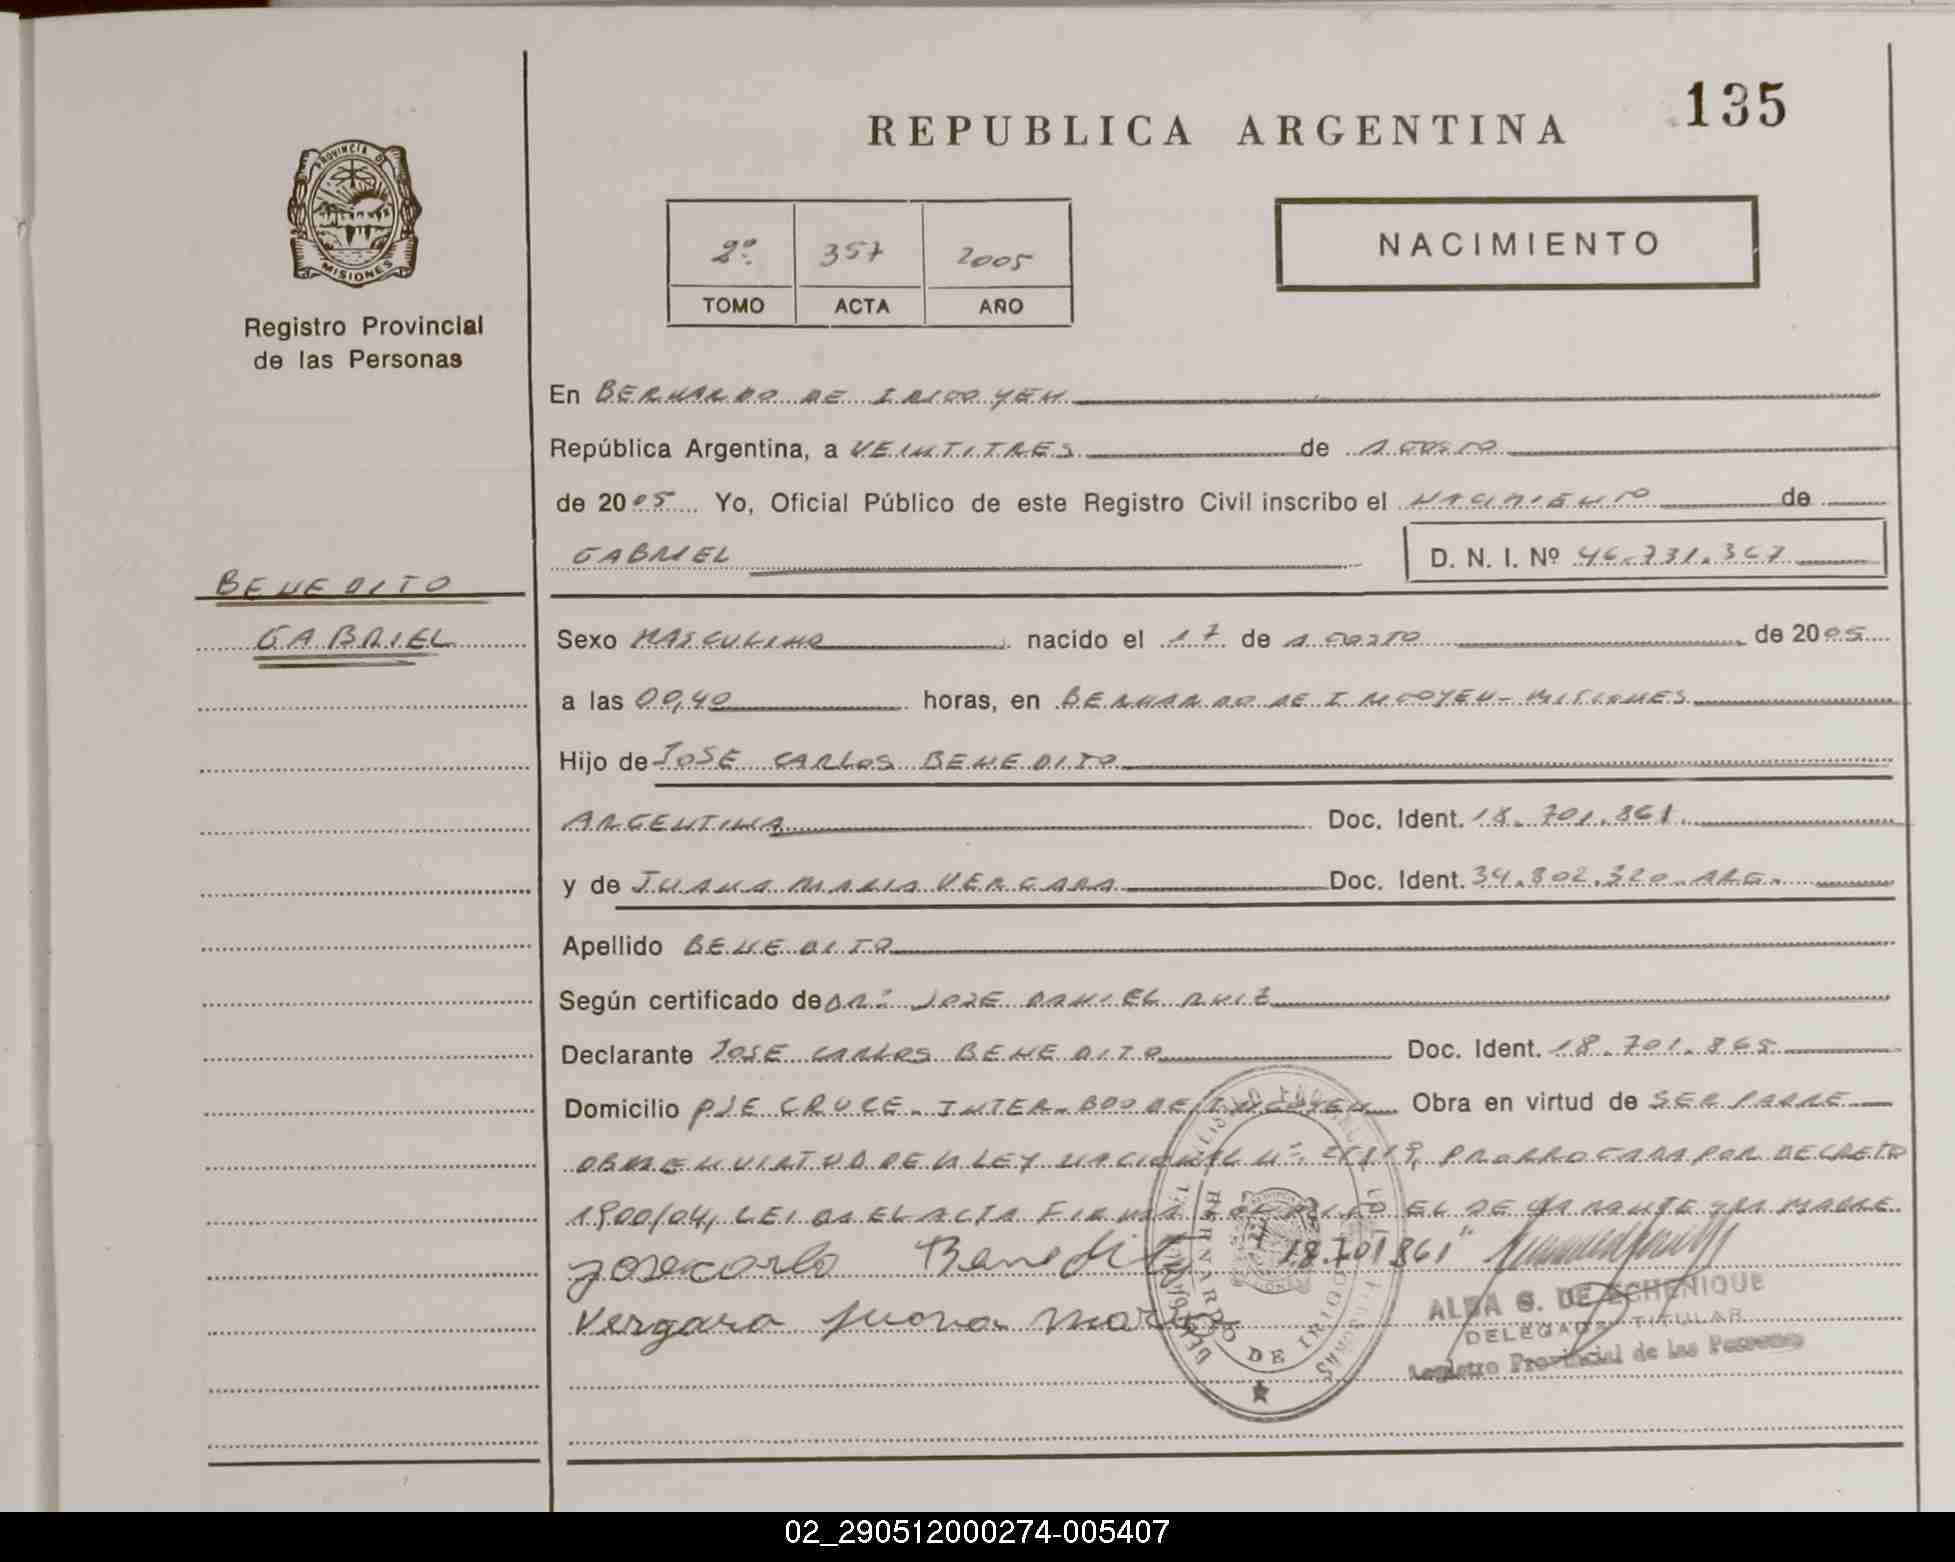 135
REPUBLICA ARGENTINA
PROVINCIA DE
MISIONES
Registro Provincial
de las Personas
2º 357 2005
TOMO ACTA AÑO
NACIMIENTO
En BERNARDO DE IRIGOYEN
República Argentina, a VEINTITRES de AGOSTO
de 2005 Yo, Oficial Público de este Registro Civil inscribo el NACIMIENTO de
GABRIEL D. N. I. Nº 46.731.367
BENEDITO
GABRIEL
Sexo MASCULINO nacido el 17 de AGOSTO de 2005
a las 00,40 horas, en BERNARDO DE IRIGOYEN-MISIONES
Hijo de JOSE CARLOS BENEDITO
ARGENTINA Doc. Ident. 18.701.861
y de JUANA MARIA VERGARA Doc. Ident. 34.802.320 ARG.
Apellido BENEDITO
Según certificado de DR. JOSE DANIEL RUIZ
Declarante JOSE CARLOS BENEDITO Doc. Ident. 18.701.865
Domicilio PJE CRUCE-INTER-BDO DE IRIGOYEN Obra en virtud de SER PADRE
OBRA EN VIRTUD DE LA LEY NACIONAL Nº PRORROGADA POR DECRETO
1900/04, LEIDA EL ACTA FIRMAN EL DECLARANTE Y LA MADRE
Jose carlo Benedito "18.701861"
Vergara Juana Maria
BERNARDO DE IRIGOYEN
ALBA G. DE ECHENIQUE
DELEGADA TITULAR
Registro Provincial de las Personas
02_290512000274-005407